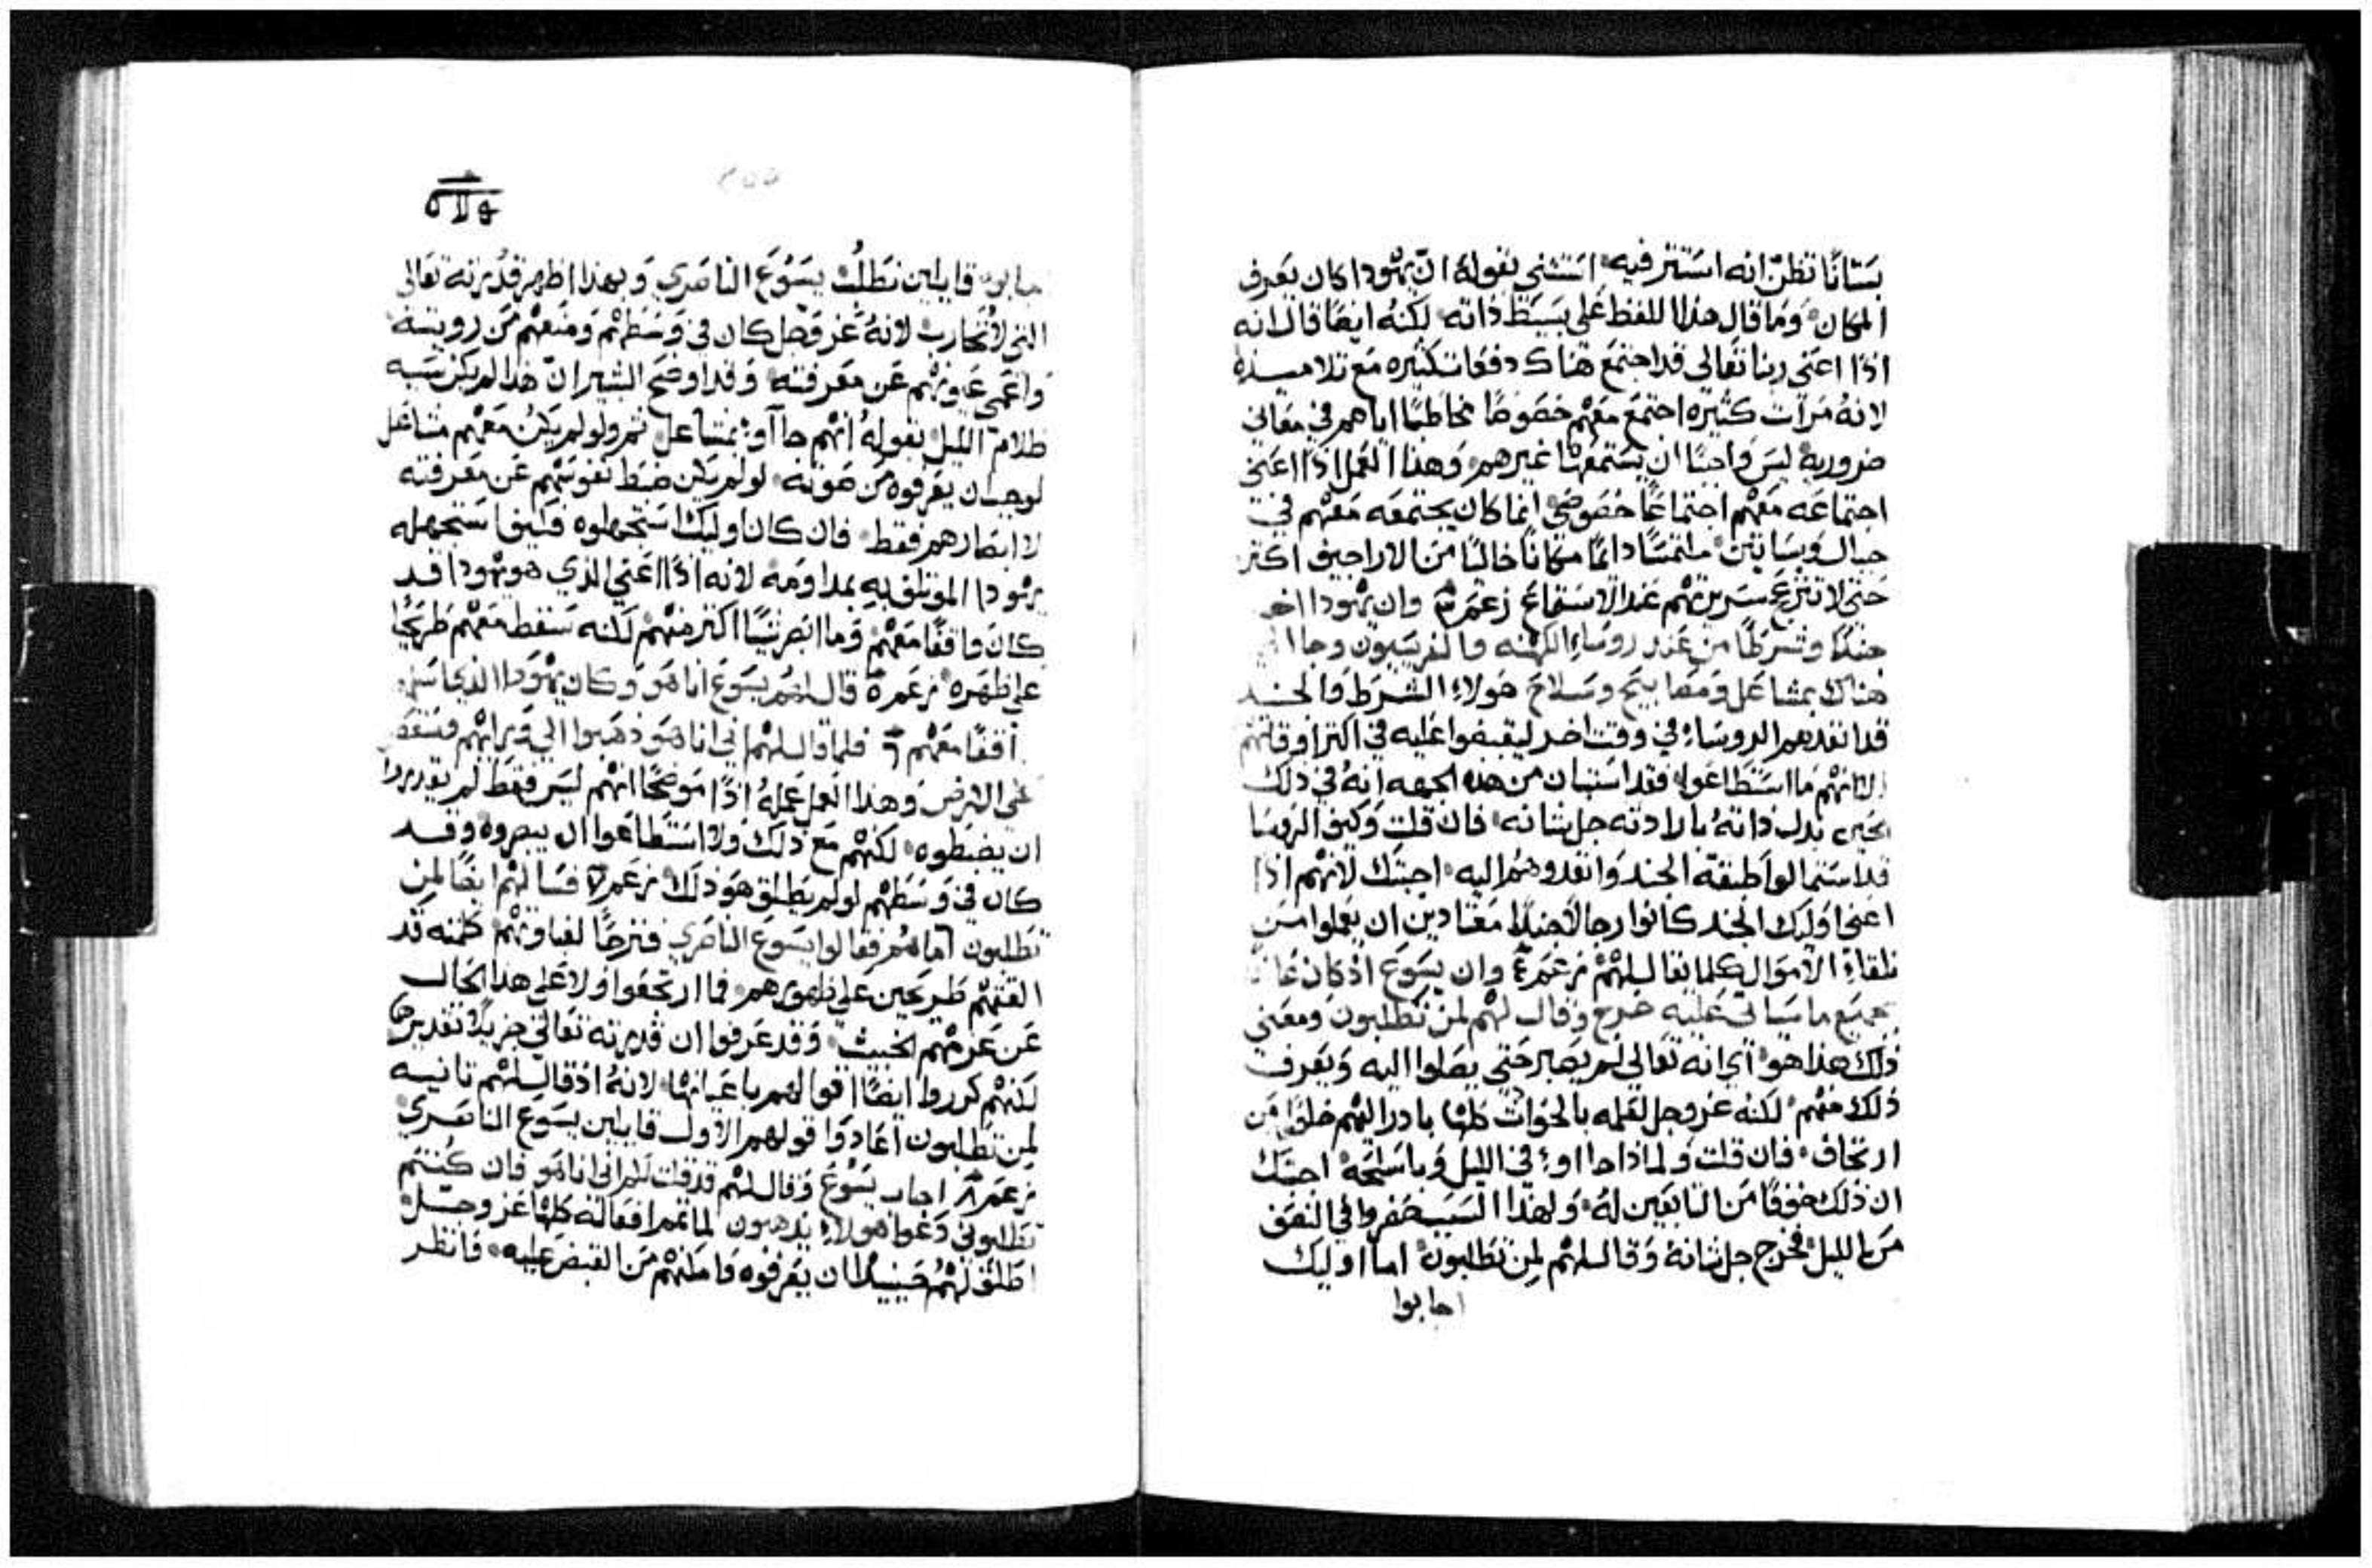 بستانًا تظن انه استتر فيه استثنى بقوله ان يهودا كان يعرف
المكان وما قال هذا اللفظ على بسيط ذاته لكنه ايضًا قال انه
اذًا اعني ربنا تعالى قد اجتمع هناك دفعات كثيره مع تلاميذه
لانه مرات كثيره اجتمع معهم خصوصًا مخاطبًا اياهم في معاني
ضرورية ليس واجبًا ان يستمعها غيرهم وهذا العمل اذًا اعني
اجتماعه معهم اجتماعًا خصوصي انما كان يجتمعه معهم في
جبال وبساتين ملتمسًا دائمًا مكانًا خاليًا من الاراجيف اكثر
حتى لا تنزعج سريرتهم عند الاستماع زعم ٣ وان يهودا اخد
جندًا وشرطًا من عند روساء الكهنه والفريسيون وجا الى
هناك بمشاعل ومصابيح وسلاح هولاء الشرط والجند
قد انفدهم الروساء في وقت اخر ليقبضوا عليه في اكثر اوقاتهم
الا انهم ما استطاعوا فقد استبان من هذه الجهه انه في ذلك
الحين بدل ذاته بارادته جل شانه فان قلت وكيف الروسا
قد استمالوا طبقة الجند وانفدوهم اليه اجبتك لانهم اذا
اعني اوليك الجند كانوا رجالًا جندًا معتادين ان يعملوا من
تلقاء الاموال كلما يقال لهم زعم ٤ وان يسوع اذ كان عارفًا
بجميع ما سياتي عليه خرج وقال لهم لمن تطلبون ومعنى
ذلك هذا هو اي انه تعالى لم يصبر حتى يصلوا اليه ويعرف
ذلك منهم لكنه عز وجل لعلمه بالحوادث كلها بادر اليهم خلوًا من
ارتجاف فان قلت ولماذا جااوا في الليل وباسلحة اجبتك
ان ذلك خوفًا من التابعين له ولهذا السبب حضروا في النصف
من الليل فخرج جل شانه وقال لهم لمن تطلبون اما اوليك
اجابوا
اجابوا قايلين نطلب يسوع الناصري وبهذا اظهر قدرته تعالى
التي لا تحارب لانه عز وجل كان في وسطهم ومنعهم من رويته
واعمى عيونهم عن معرفته وقد اوضح البشير ان هذا لم يكن سببه
ظلام الليل بقوله انهم جااوا بمشاعل ثم ولو لم يكن معهم مشاعل
لوجب ان يعرفوه من صوته لو لم يكن ضبط نفوسهم عن معرفته
لا ابصارهم فقط فان كان اوليك استجهلوه فكيف استجهله
يهودا الموتلف به بمداومه لانه اذًا اعني الذي هو يهودا قد
كان واقفًا معهم وما ابصر شيًا اكثر منهم لكنه سقط معهم طريحًا
على ظهره زعم ٥ قال لهم يسوع انا هو وكان يهودا الذي اسلمه
واقفًا معهم ٦ فلما قال لهم اني انا هو ذهبوا الى ورايهم وسقطوا
على الارض وهذا العمل عمله اذًا موضحًا انهم ليس فقط لم يقدروا
ان يضبطوه لكنهم مع ذلك ولا استطاعوا ان يبصروه وقد
كان في وسطهم لو لم يطلق هو ذلك زعم ٧ فسالهم ايضًا لمن
تطلبون اما هم فقالوا يسوع الناصري فترحًا لغباوتهم كلمته قد
القتهم طريحين على ظهورهم فما ارتجفوا ولا على هذا الحال
عن عزمهم الخبيث وقد عرفوا ان قدرته تعالى جزيلًا تقديرها
لكنهم كرروا ايضًا اقوالهم باعيانها لانه اذ قال لهم ثانيه
لمن تطلبون اعادوا قولهم الاول قايلين يسوع الناصري
زعم ٨ اجاب يسوع وقال لهم قد قلت لكم اني انا هو فان كنتم
تطلبوني دعوا هولاء يذهبون لما تمم افعاله كلها عز وجل
اطلق لهم حينيذ ان يعرفوه وامكنهم من القبض عليه فانظر